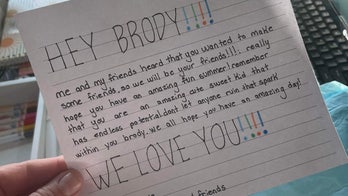 HEY BRODY!!!!
me and my friends heard that you wanted to make
some friends, so we will be your friends!!i really
hope you have an amazing fun summer! remember
that you are an amazing cute sweet kid that
has endless potential. dont let anyone ruin that spark
within you brody. we all hope you have an amazing day!
WE LOVE YOU!!!!
friends